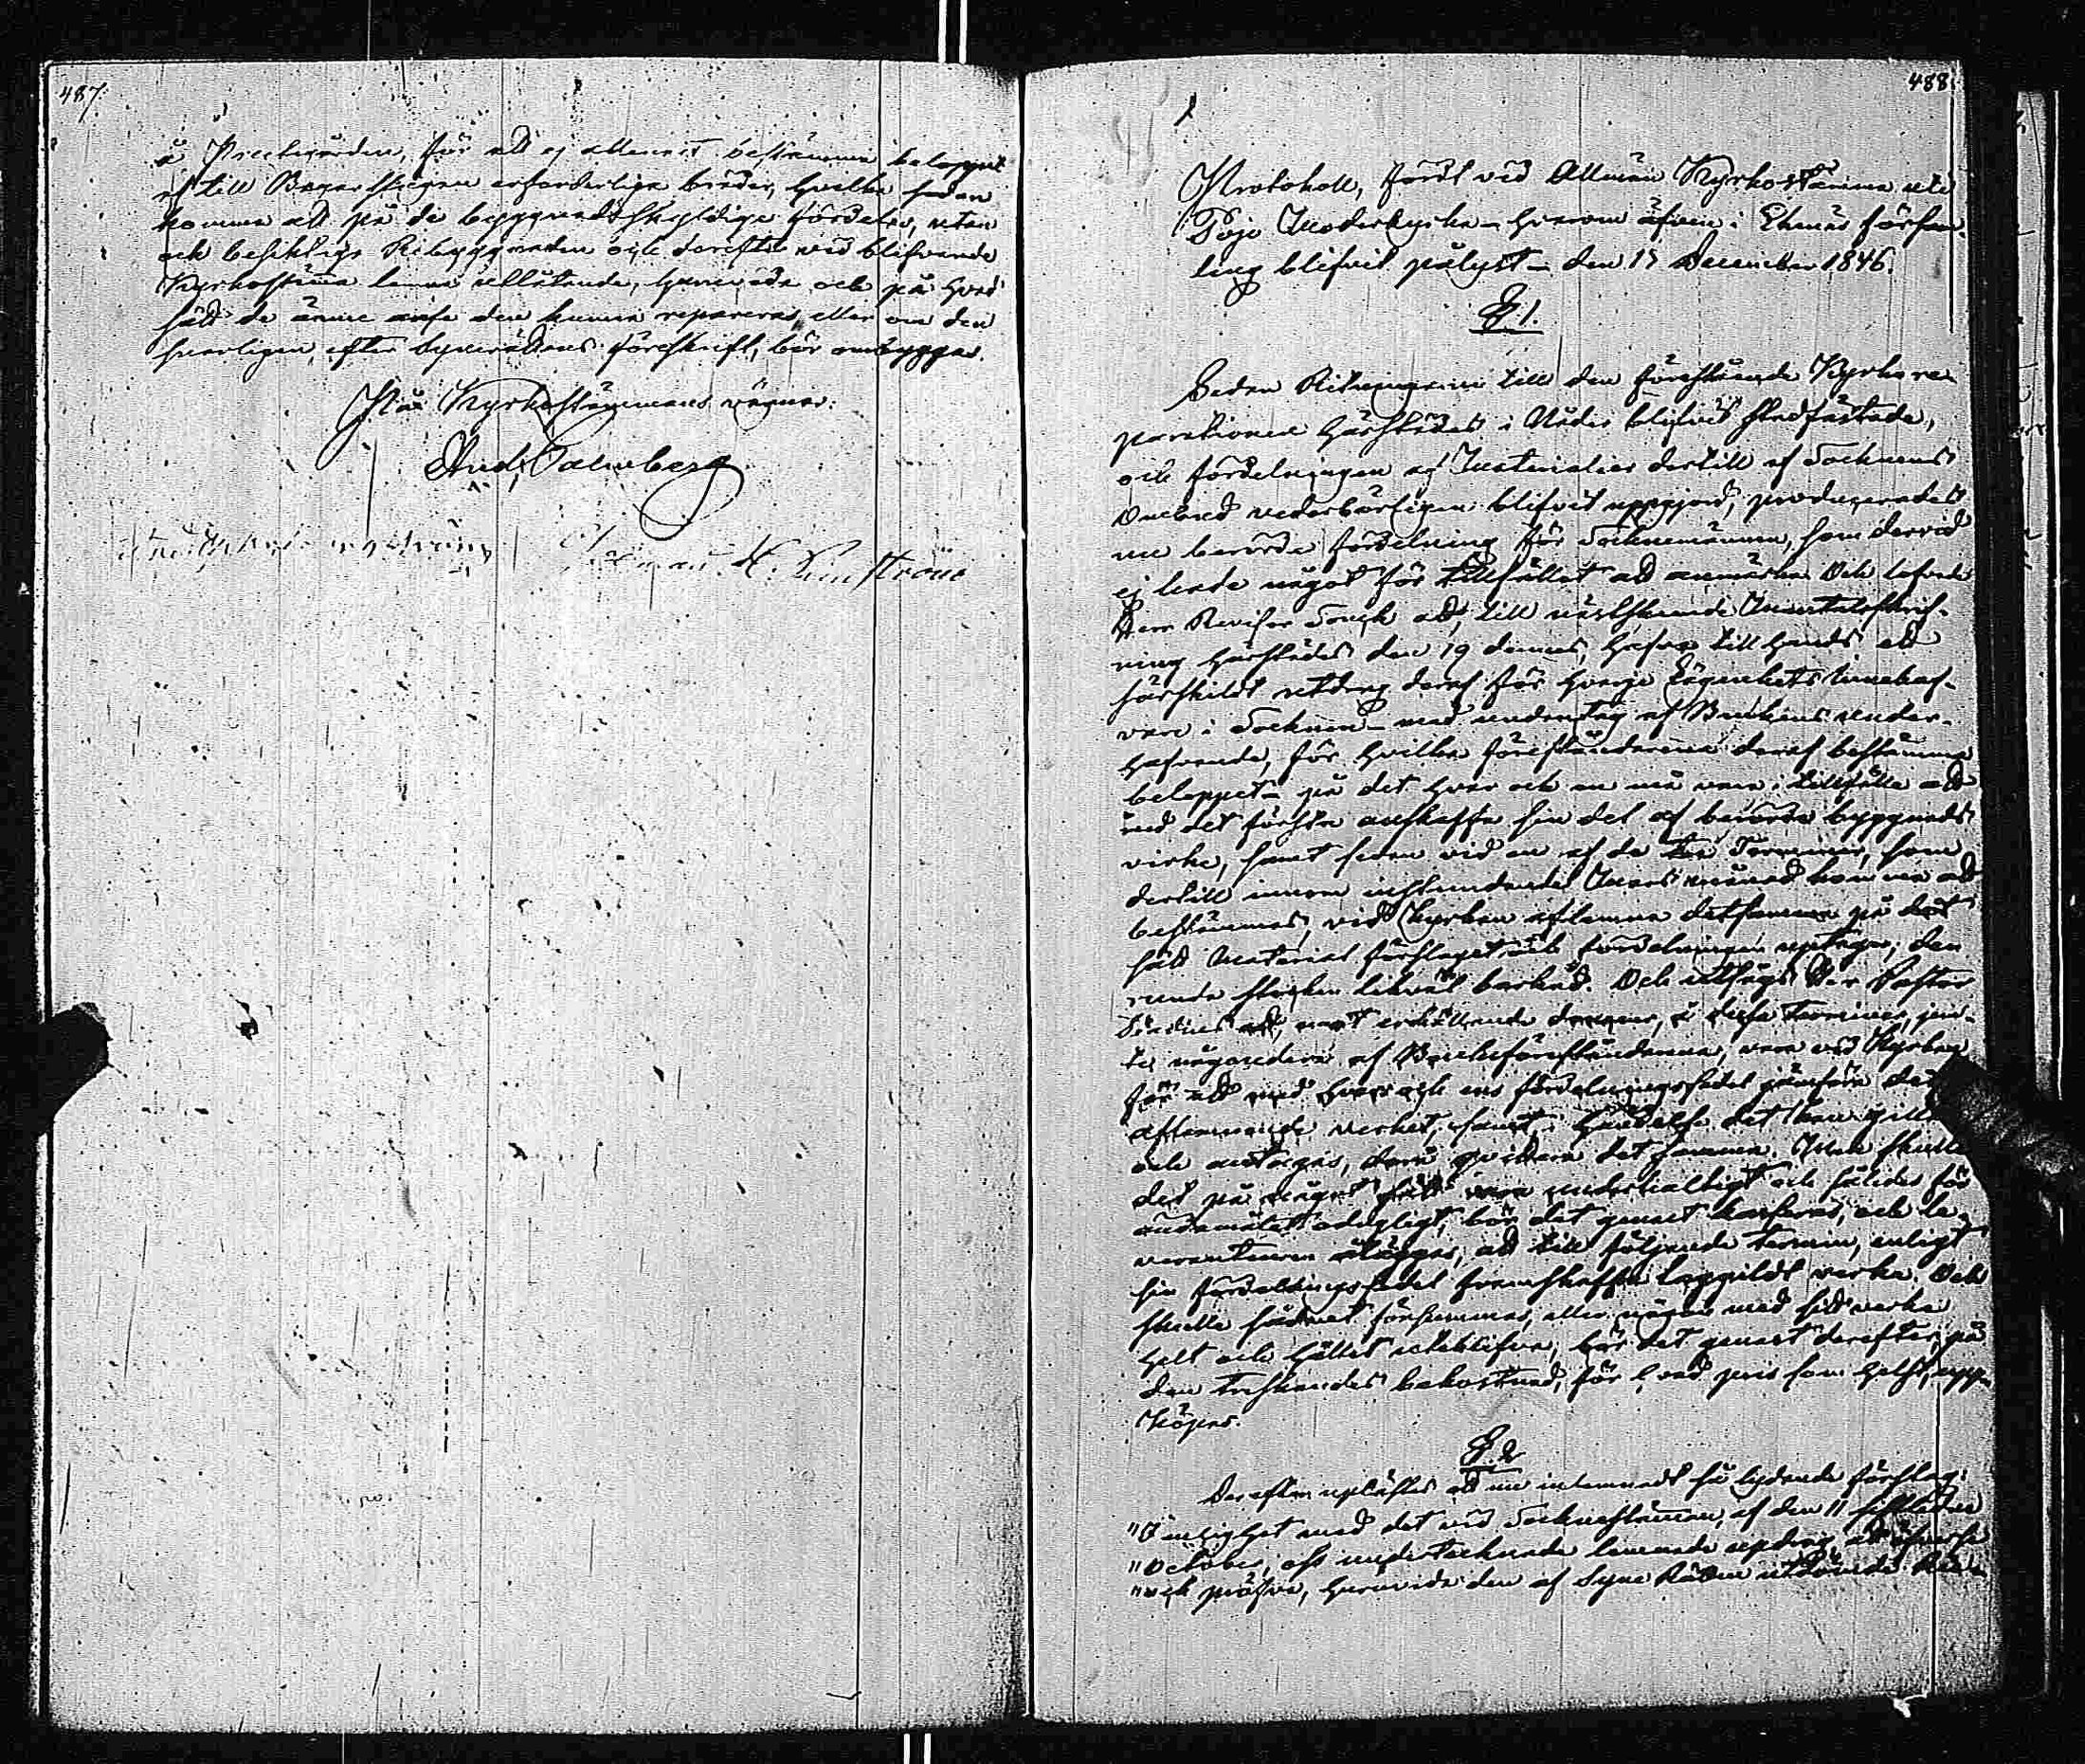 487.
å Prestgården, för att ej allenast bestämma beloppet
af till Bagarstugan erforderliga bräder, hvilka sedan
komma att på de byggnadsskyldige fördelas, utan
ock besiktiga Ribyggnaden och derefter vid blifvande
Kyrkostämma lemna utlåtande, huruvida och på hvad
sätt de ännu anse den kunna repareras, eller om den
snarligen, efter Synerättens föreskrift, bör ombyggas.
På Kyrkostämmans vägnar:
And. Palmberg
488
Protokoll, fördt vid Allmän Kyrkostämma uti
Pojo Moderkyrka – hvarom äfven i Ekenäs försam-
ling blifvit pålyst – den 13 December 1846.
§ 1.
Sedan Ritningarne till den förestående Kyrkore-
parationen härstädes i Nåder blifvit stadfästade,
och fördelningen af Materialier dertill af Socknens
Ombud vederbörligen blifvit uppgjord, producerades
nu berörde fördelning för Sockenmännen, som dervid
ej hade något för tillfället att anmärka. Och lofvade
Herr Revisor att, till nästskeende Mantalsskrif-
ning härstädes den 19 dennes, hafva till hands ett
särskildt utdrag deraf för hvarje Lägenhets innehaf-
vare i Socknen – med undantag af Brukens under-
hafvande, för hvilka föreståndarena deraf bestämma
beloppet – på det hvar och en må vara i tillfälle att
med det första anskaffa sin del af berörde byggnads
virke, samt sedan vid en af de Terminer, som
dertill innom instundande Mars månad komma att
bestämmas, vid Kyrkan aflemna detsamma på det
sätt Material förslaget och fördelningen upptager; den
runda stocken likväl barkad. Och utsågs Herr Pastor
att, mot erhållande, å dessa terminer, jem-
te någondera af Bruksföreståndarena, vara vid Kyrkan
för att med hvars och ens fördelningssedel jämföra det
aflemnande verket, samt, i händelse det
och antages, detsamma. Men skulle
det på något sätt vara underhaltigt och således för
ändamålet odugligt, bör det genast kasseras, och le-
veranteuren åläggas, att till följande termin, enligt
sin fördelningssedel framskaffa laggildt verke. Och
skulle sådant försummas, eller någon med sitt verke
helt och hållet utblifva, bör det genast derefter, på
den treskandes bekostnad, för hvad pris som helst, upp-
köpas.
§ 2
Derefter uplästes ett nu inlemnadt så lydande förslag:
"I enlighet med det vid Sockenstämman, af den 11 sistledne
"October, oss undertecknade lemnade updrag, att öfverse
"och pröfva, huruvida den af Syne Rätten utdömda